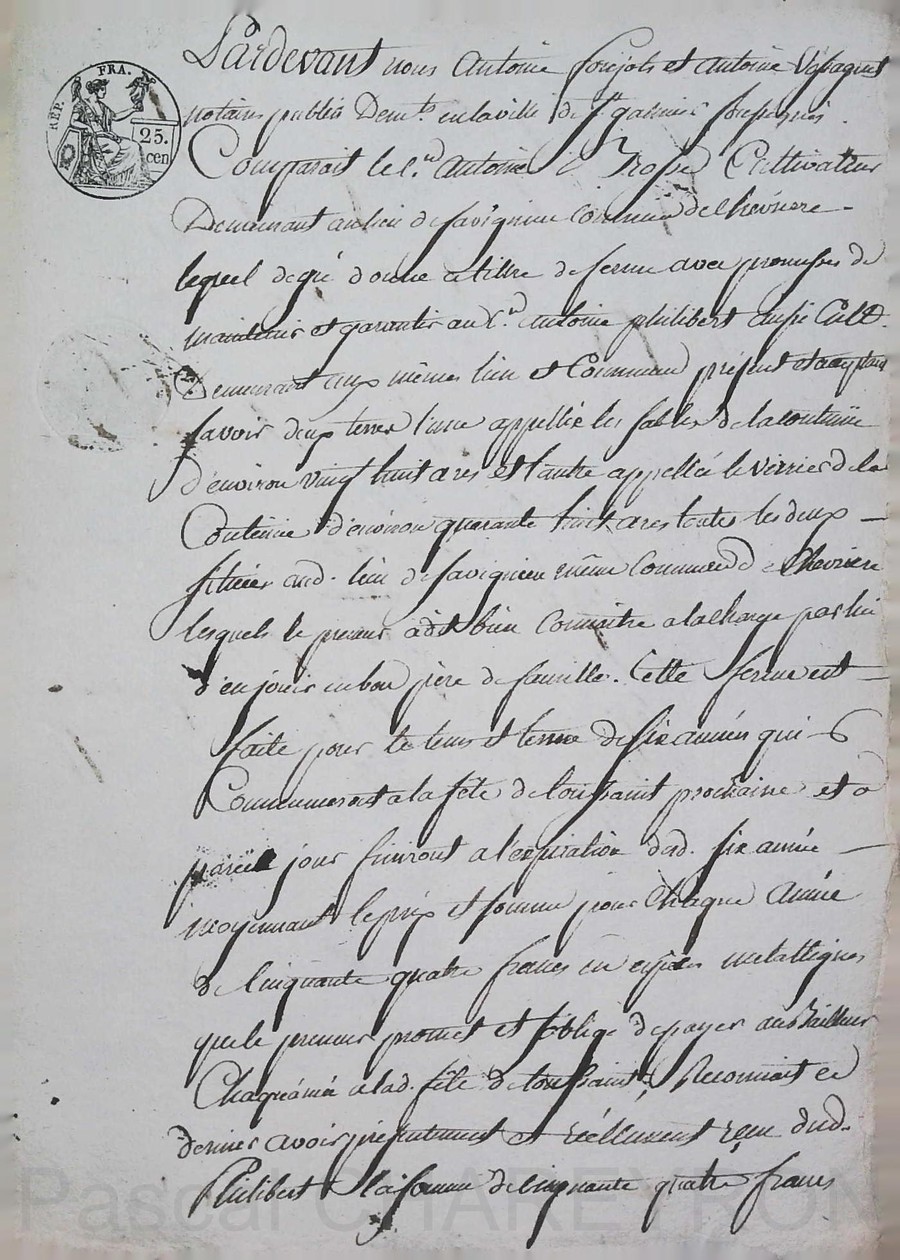 RÉP. FRA.
25.
cen
Pardevant nous Antoine et Antoine
notaires publics Demts. en la ville de St. galmier soussignés
Comparait le Sr. Antoine Cultivateur
Demeurant au lieu de savignieu Commune de Chevriere
lequel de gré donne a titre de ferme avec promesses de
maintenir et garantir au Sr. Antoine philibert aussi Cult.
Demeurant aux mêmes lieu et Commune présent et acceptant
savoir deux terres l'une appellée les sables de la contenue
d'environ vingt huit ares et l'autre appellée le verrier de la
Contenue d'environ quarante huit ares toutes les deux
situées aud. lieu de savignieu même Commune de Chevriere
lesquels le preneur a dit bien Connaitre a la charge par lui
d'en jouir en bon père de famille. Cette ferme est
faite pour le tems et terme de six années qui
Commenceront a la fête de toussaint prochaine et a
pareil jour finiront a l'expiration desd. six année
moyennant le prix et somme pour Chaque Année
de Cinquante quatre francs en espèces metalliques
que le preneur promet et s'oblige de payer au Bailleur
Chaque année a lad. fête de toussaint, Reconnait ce
dernier avoir présentement et réellement reçu dud.
Philibert la somme de Cinquante quatre francs
Pascal CHAREYRON